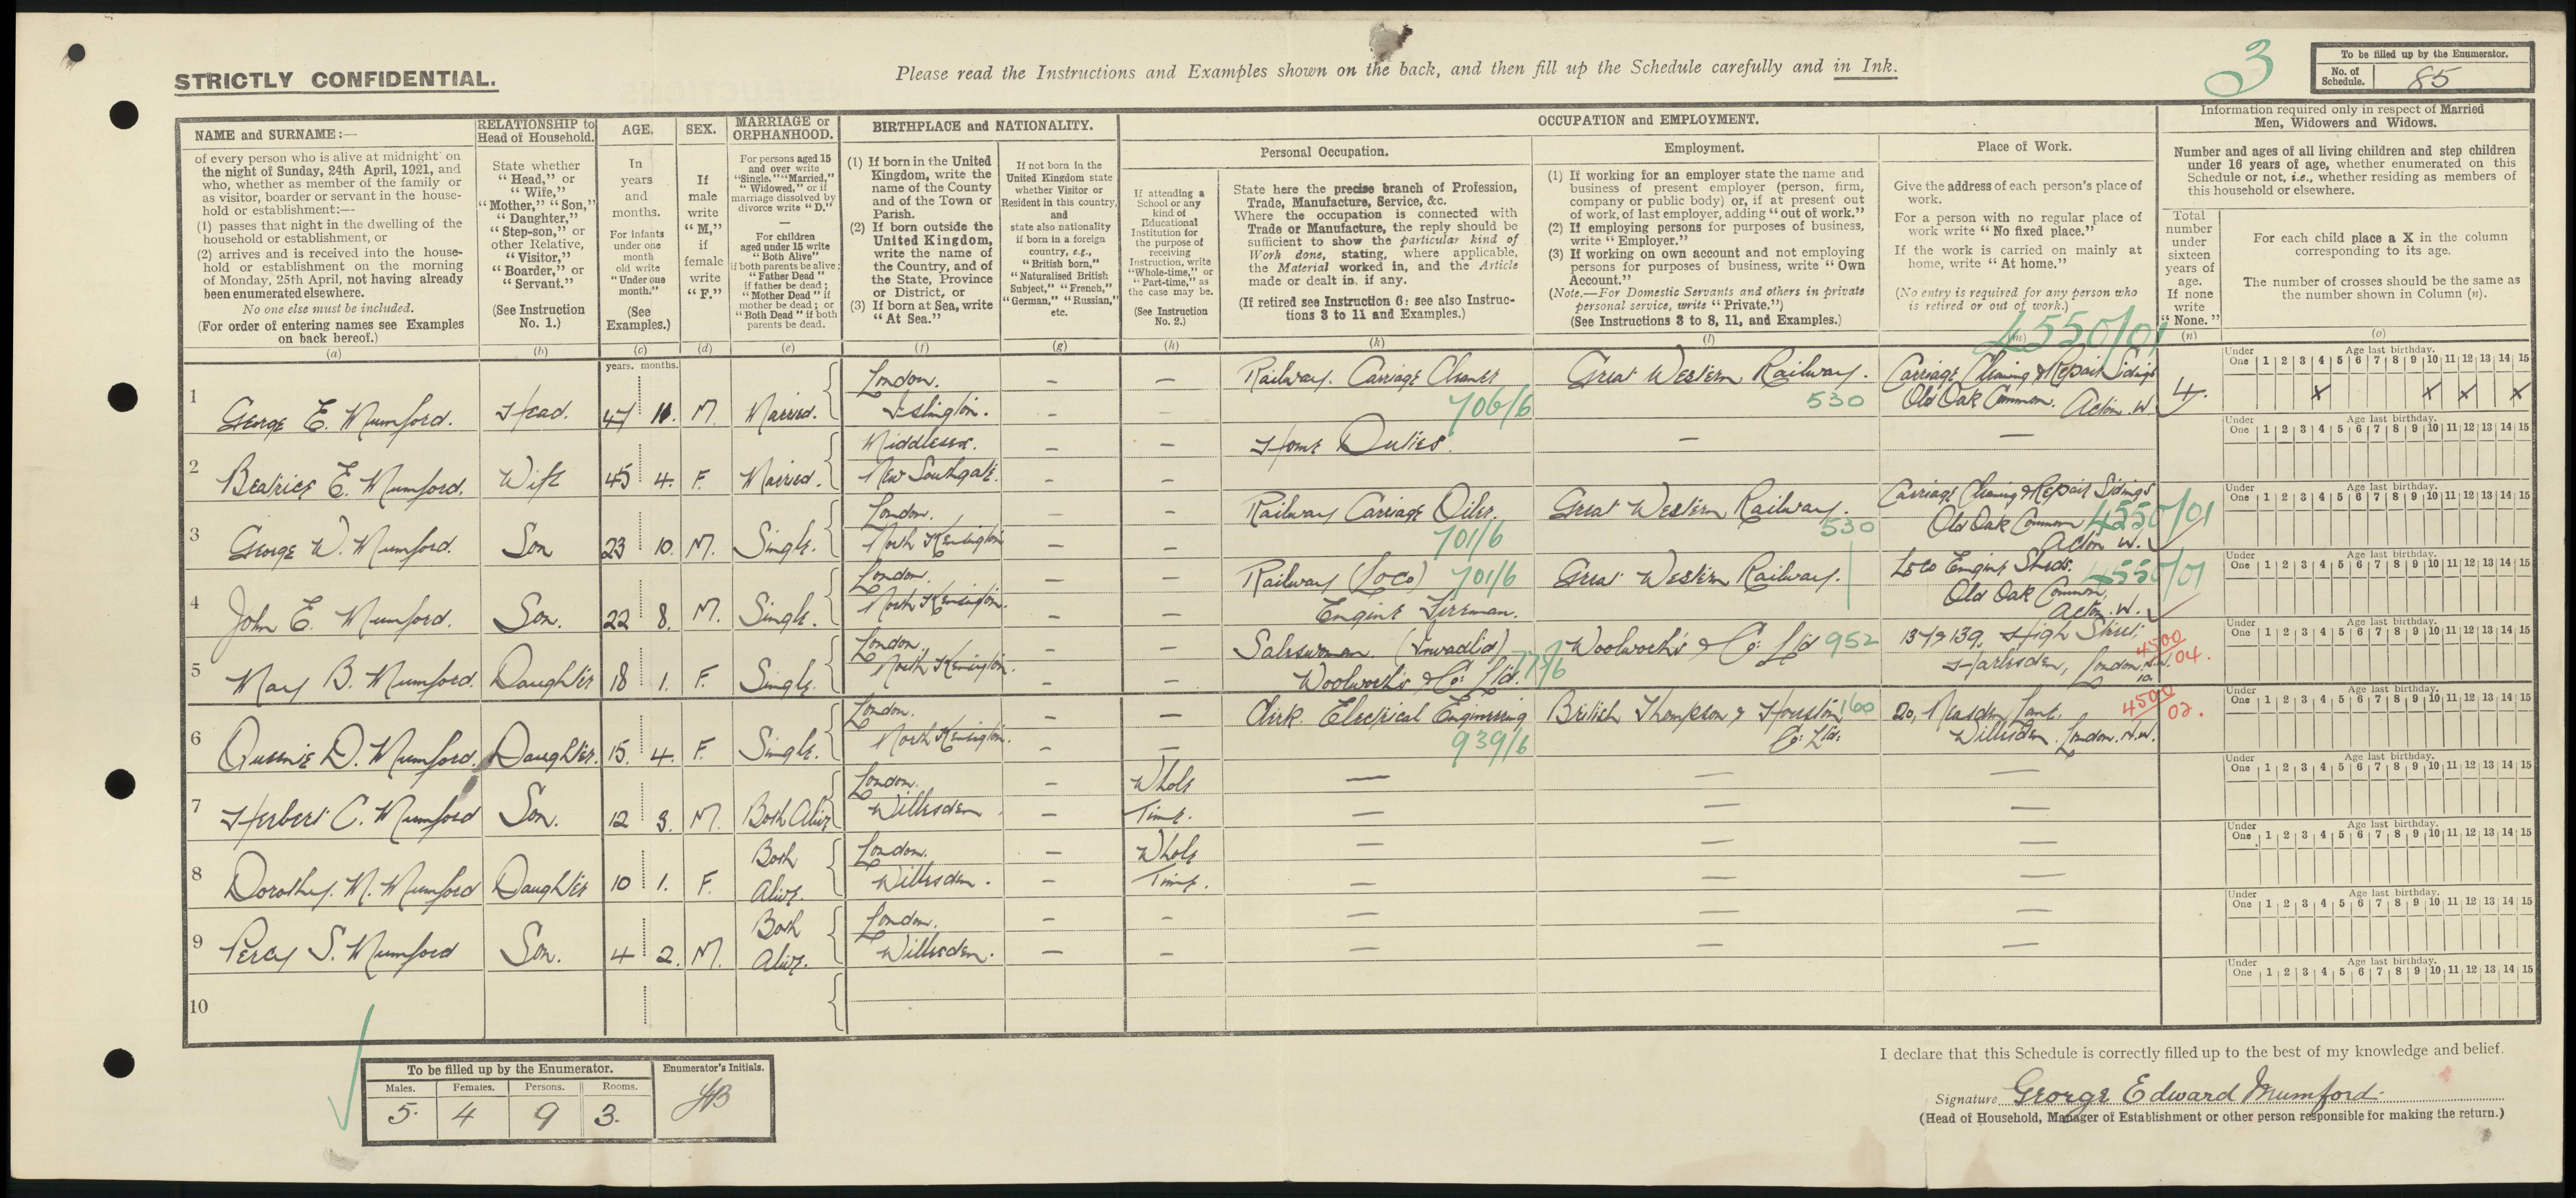 STRICTLY CONFIDENTIAL.
Please read the Instructions and Examples shown on the back, and then fill up the Schedule carefully and in Ink.
3
To be filled up by the Enumerator.
No. of Schedule. 85
NAME and SURNAME:—
of every person who is alive at midnight on
the night of Sunday, 24th April, 1921, and
who, whether as member of the family or
as visitor, boarder or servant in the house-
hold or establishment:—
(1) passes that night in the dwelling of the
household or establishment, or
(2) arrives and is received into the house-
hold or establishment on the morning
of Monday, 25th April, not having already
been enumerated elsewhere.
No one else must be included.
(For order of entering names see Examples
on back hereof.)
(a)
RELATIONSHIP to
Head of Household.
State whether
"Head," or
"Wife,"
"Mother," "Son,"
"Daughter,"
"Step-son," or
other Relative,
"Visitor,"
"Boarder," or
"Servant."
(See Instruction
No. 1.)
(b)
AGE.
In
years
and
months.
For infants
under one
month
old write
"Under one
month."
(See
Examples.)
(c)
SEX.
If
male
write
"M,"
if
female
write
"F."
(d)
MARRIAGE or
ORPHANHOOD.
For persons aged 15
and over write
"Single," "Married,"
"Widowed," or if
marriage dissolved by
divorce write "D."
—
For children
aged under 15 write
"Both Alive"
if both parents be alive;
"Father Dead"
if father be dead;
"Mother Dead" if
mother be dead; or
"Both Dead" if both
parents be dead.
(e)
BIRTHPLACE and NATIONALITY.
(1) If born in the United
Kingdom, write the
name of the County
and of the Town or
Parish.
(2) If born outside the
United Kingdom,
write the name of
the Country, and of
the State, Province
or District, or
(3) If born at Sea, write
"At Sea."
(f)
If not born in the
United Kingdom state
whether Visitor or
Resident in this country,
and
state also nationality
if born in a foreign
country, e.g.,
"British born,"
"Naturalised British
Subject," "French,"
"German," "Russian,"
etc.
(g)
OCCUPATION and EMPLOYMENT.
Personal Occupation.
If attending a
School or any
kind of
Educational
Institution for
the purpose of
receiving
Instruction, write
"Whole-time," or
"Part-time," as
the case may be.
(See Instruction
No. 2.)
(h)
State here the precise branch of Profession,
Trade, Manufacture, Service, &c.
Where the occupation is connected with
Trade or Manufacture, the reply should be
sufficient to show the particular kind of
Work done, stating, where applicable,
the Material worked in, and the Article
made or dealt in, if any.
(If retired see Instruction 6: see also Instruc-
tions 3 to 11 and Examples.)
(k)
Employment.
(1) If working for an employer state the name and
business of present employer (person, firm,
company or public body) or, if at present out
of work, of last employer, adding "out of work."
(2) If employing persons for purposes of business,
write "Employer."
(3) If working on own account and not employing
persons for purposes of business, write "Own
Account."
(Note.—For Domestic Servants and others in private
personal service, write "Private.")
(See Instructions 3 to 8, 11, and Examples.)
(l)
Place of Work.
Give the address of each person's place of
work.
For a person with no regular place of
work write "No fixed place."
If the work is carried on mainly at
home, write "At home."
(No entry is required for any person who
is retired or out of work.)
(m)
Information required only in respect of Married
Men, Widowers and Widows.
Number and ages of all living children and step children
under 16 years of age, whether enumerated on this
Schedule or not, i.e., whether residing as members of
this household or elsewhere.
Total
number
under
sixteen
years of
age.
If none
write
"None."
(n)
For each child place a X in the column
corresponding to its age.
The number of crosses should be the same as
the number shown in Column (n).
(o)
years. months.
4550/01
1 George E. Mumford. Head. 47 11. M. Married. London. Islington. — — Railway. Carriage Cleaner 706/6 Great Western Railway. 530 Carriage Cleaning & Repair Sidings Old Oak Common. Acton. W. 4. X X X X
Under One 1 2 3 4 5 6 7 8 9 10 11 12 13 14 15 Age last birthday.
2 Beatrice E. Mumford. Wife 45 4. F. Married. Middlesex. New Southgate. — — Home Duties. — —
Under One 1 2 3 4 5 6 7 8 9 10 11 12 13 14 15 Age last birthday.
3 George W. Mumford. Son 23 10. M. Single. London. North Kensington — — Railway Carriage Oiler. 701/6 Great Western Railway. 530 Carriage Cleaning & Repair Sidings Old Oak Common Acton W. 4550/01
Under One 1 2 3 4 5 6 7 8 9 10 11 12 13 14 15 Age last birthday.
4 John E. Mumford. Son. 22 8. M. Single. London. North Kensington. — — Railway (Loco) 701/6 Engine Fireman. Great Western Railway. Loco Engine Sheds. Old Oak Common, Acton. W. 4550/01
Under One 1 2 3 4 5 6 7 8 9 10 11 12 13 14 15 Age last birthday.
5 May B. Mumford. Daughter 18 1. F. Single. London. North Kensington. — — Saleswoman. (Invadlid) Woolworth's & Co: Ltd. 777/6 Woolworth's & Co: Ltd 952 137 & 139, High Street, Harlesden, London. N.W. 10. 4500 04.
Under One 1 2 3 4 5 6 7 8 9 10 11 12 13 14 15 Age last birthday.
6 Queenie D. Mumford. Daughter. 15. 4. F. Single. London. North Kensington. — — Clerk. Electrical Engineering 939/6 British Thompson & Houston Co: Ltd: 160 20, Neasden Lane. Willesden. London. N.W. 4500 02.
Under One 1 2 3 4 5 6 7 8 9 10 11 12 13 14 15 Age last birthday.
7 Herbert C. Mumford Son. 12 3. M. Both Alive London. Willesden — Whole Time. — — —
Under One 1 2 3 4 5 6 7 8 9 10 11 12 13 14 15 Age last birthday.
8 Dorothy. M. Mumford Daughter 10 1. F. Both Alive. London. Willesden. — Whole Time. — — —
Under One 1 2 3 4 5 6 7 8 9 10 11 12 13 14 15 Age last birthday.
9 Percy S. Mumford Son. 4 2. M. Both Alive. London. Willesden. — — — — —
Under One 1 2 3 4 5 6 7 8 9 10 11 12 13 14 15 Age last birthday.
10
Under One 1 2 3 4 5 6 7 8 9 10 11 12 13 14 15 Age last birthday.
To be filled up by the Enumerator. Enumerator's Initials.
Males. Females. Persons. Rooms.
5. 4 9 3.
I declare that this Schedule is correctly filled up to the best of my knowledge and belief.
Signature George Edward Mumford.
(Head of Household, Manager of Establishment or other person responsible for making the return.)